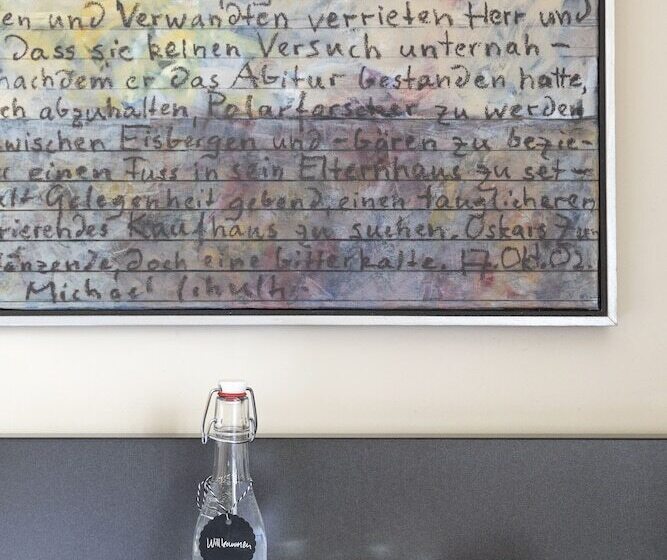 en und Verwandten verrieten Herr und
Dass sie keinen Versuch unternah-
nachdem er das Abitur bestanden hatte,
ch abzuhalten, Polarforscher zu werden
wischen Eisbergen und -bären zu bezie-
r einen Fuss in sein Elternhaus zu set-
Gelegenheit gebend, einen tauglicheren
rierendes Kaufhaus zu suchen. Oskars Zu-
änzende, doch eine bitterkalte. 17. Okt. 02.
Michael
Willkommen